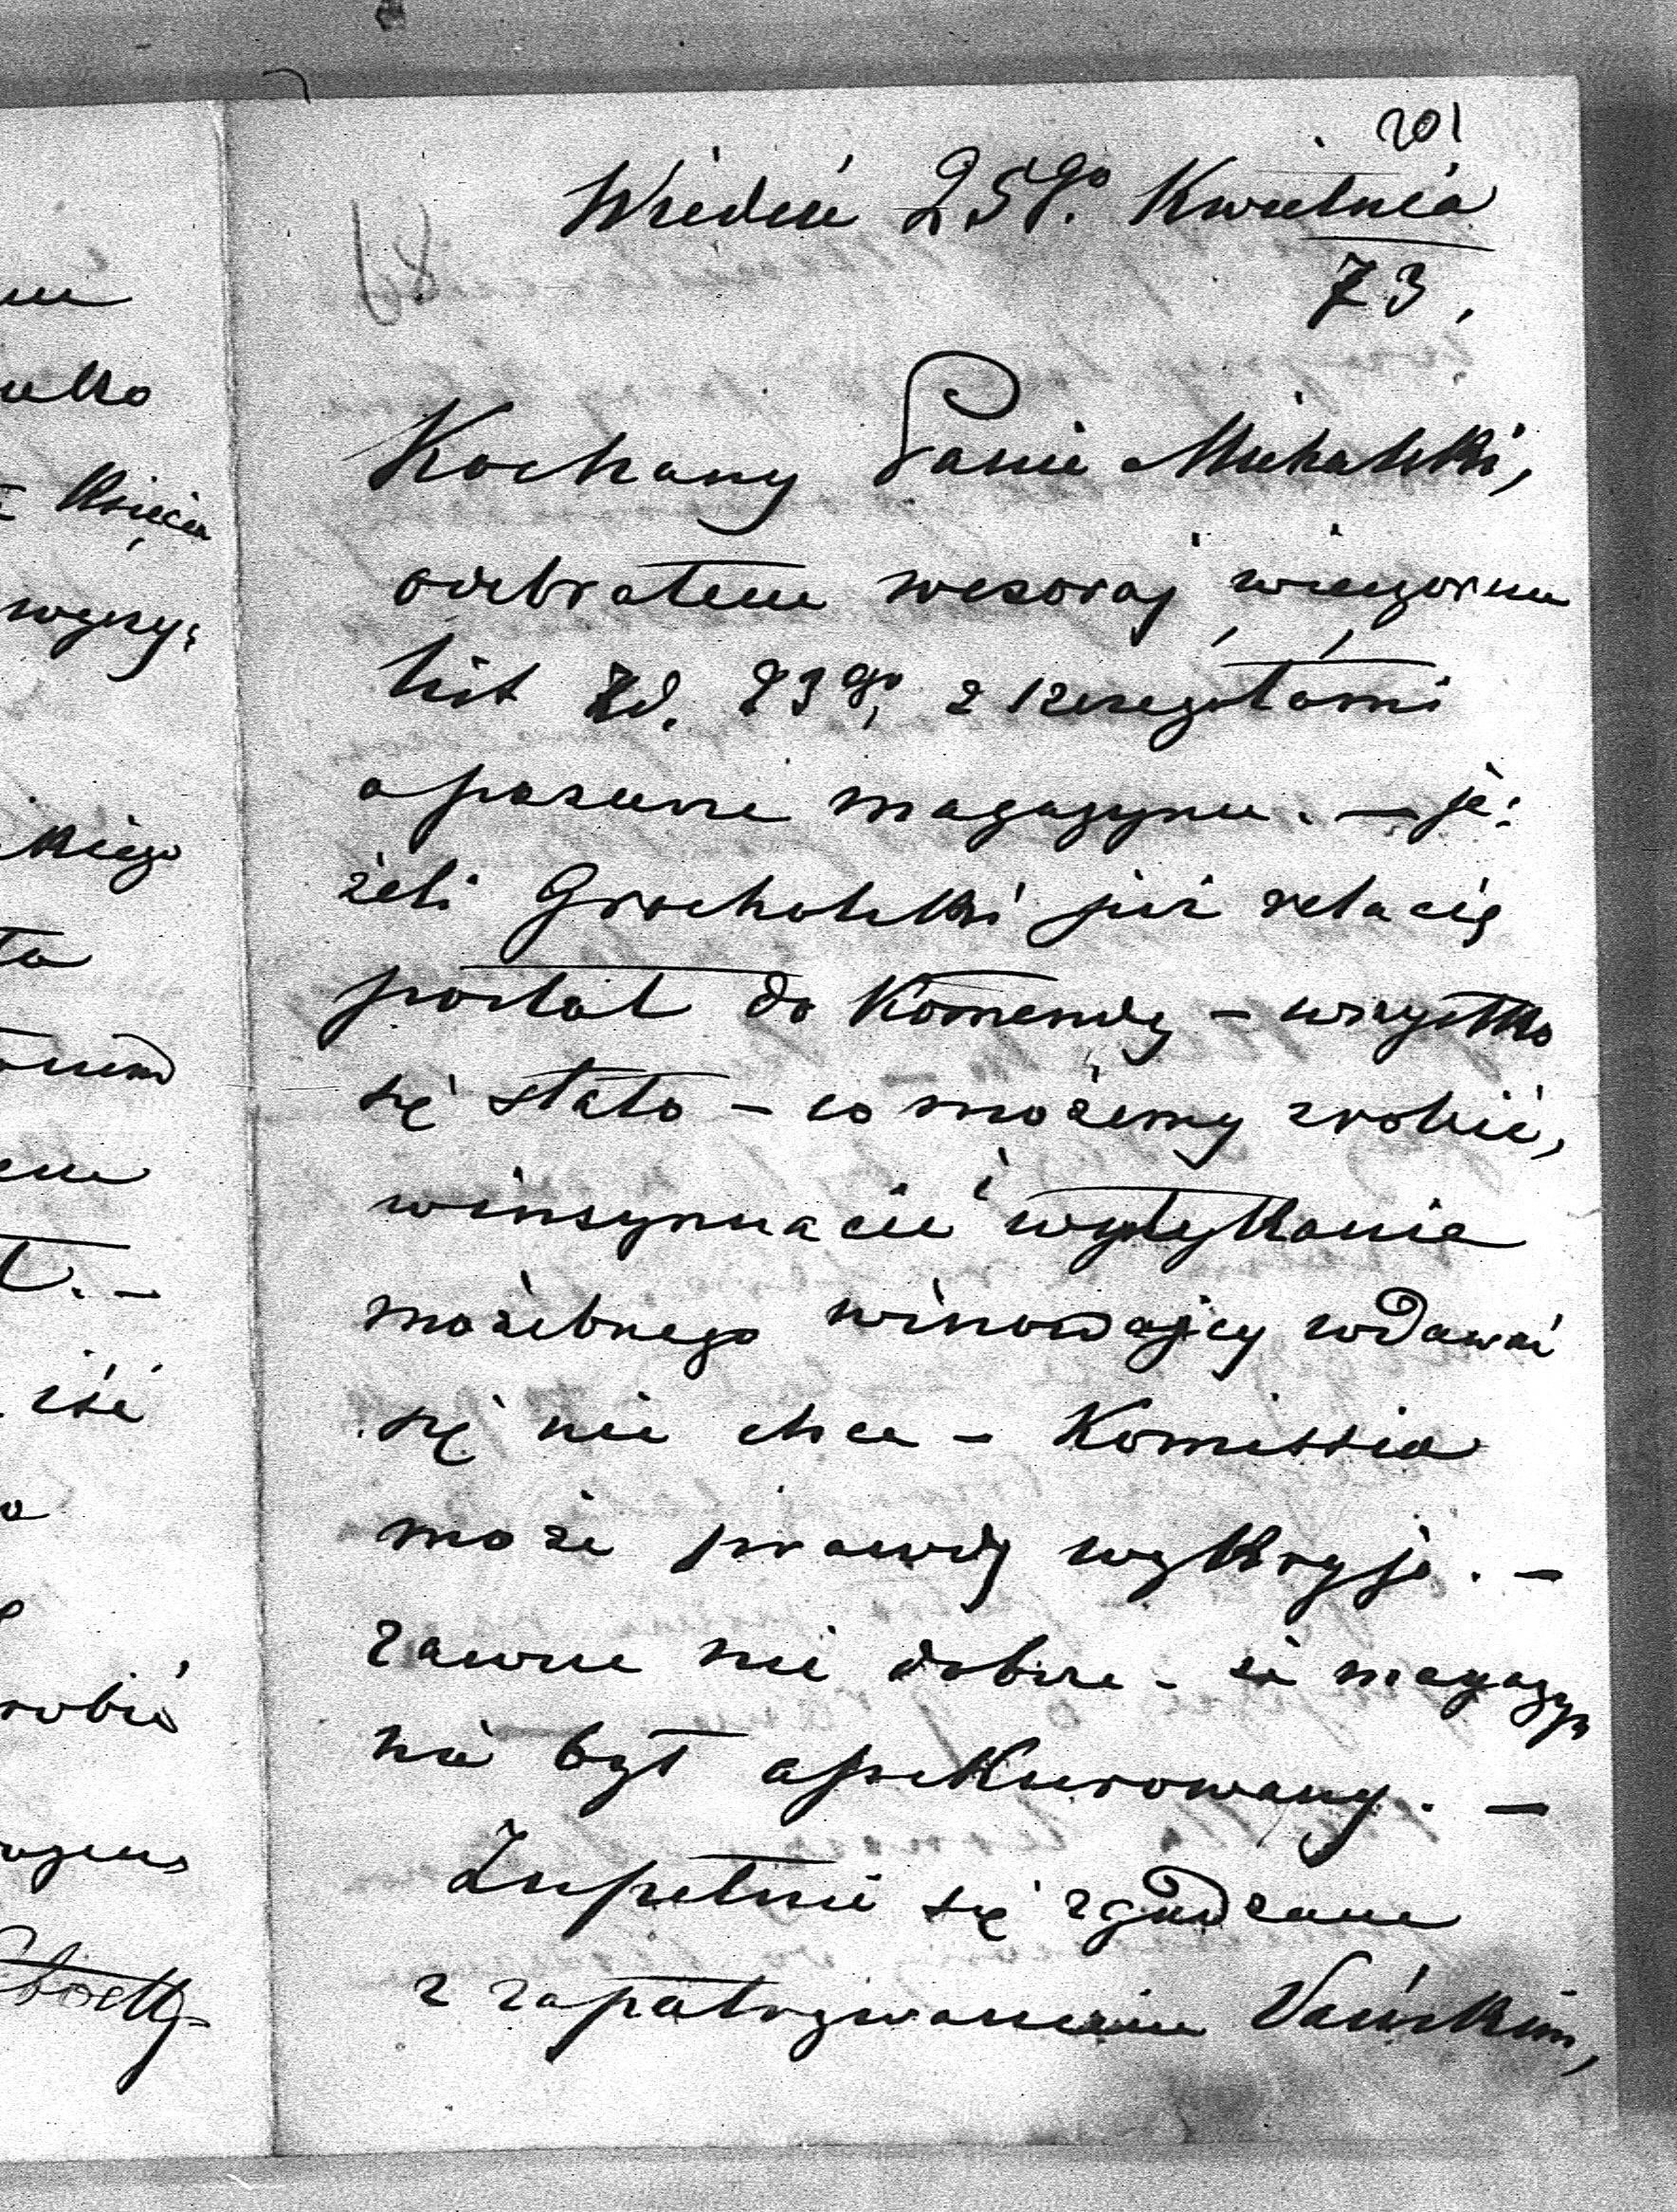 201
Wiedeń 25go Kwietnia
73.
Kochany Panie Michalski,
odebrałem wczoraj wieczorem
list z d. 23go, z szczegółami
o pożarze magazynu. — je:
żeli Grocholski już relacię
posłał do Komendy — wszystko
się stało — co możemy zrobić,
w insynuacie i wytykanie
możebnego winowajcy wdawać
się nie chcę — Komissia
może prawdę wykryje. —
zawsze nie dobrze — że magazyn
nie był assekurowany. —
Zupełnie się zgadzam
z zapatrywaniem Pańskim,
Księcia
wyży:
kiego
iść
robić